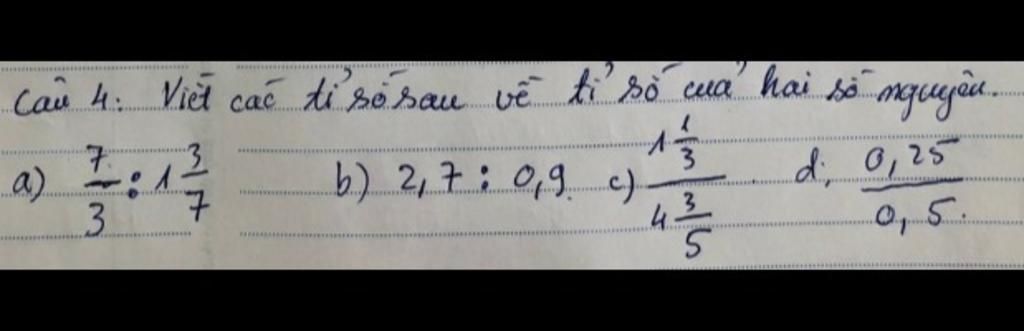 Câu 4: Viết các tỉ số sau về tỉ số của hai số nguyên.
a) 7/3 : 1 3/7 b) 2,7 : 0,9. c) (1 1/3)/(4 3/5). d, 0,25/0,5.